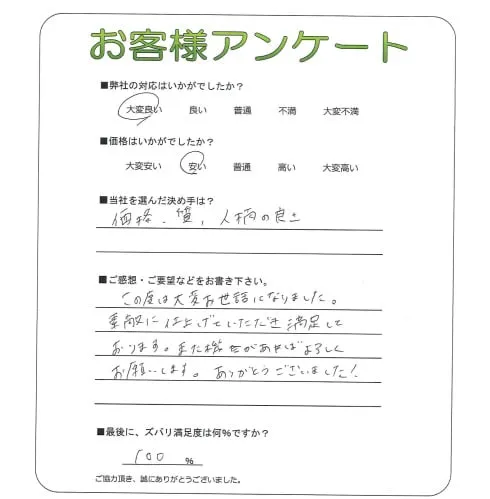 お客様アンケート
■弊社の対応はいかがでしたか？
大変良い 良い 普通 不満 大変不満
■価格はいかがでしたか？
大変安い 安い 普通 高い 大変高い
■当社を選んだ決め手は？
価格、質、人柄の良さ
■ご感想・ご要望などをお書き下さい。
この度は大変お世話になりました。
素敵に仕上げていただき満足して
おります。また機会があればよろしく
お願いします。ありがとうございました！
■最後に、ズバリ満足度は何％ですか？
100 ％
ご協力頂き、誠にありがとうございました。